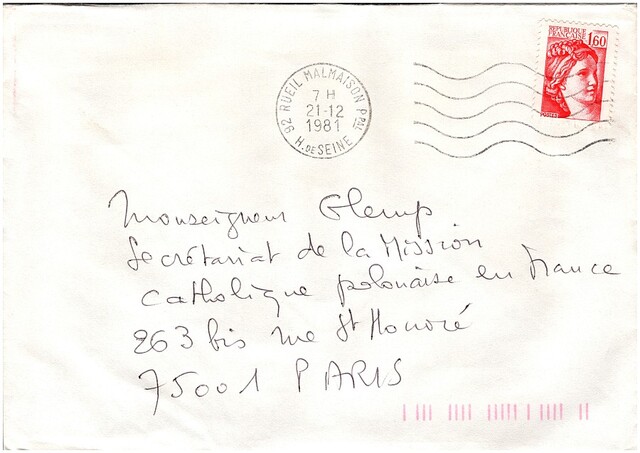 RÉPUBLIQUE
FRANÇAISE 1,60
POSTES
92 RUEIL MALMAISON PPAL
7 H
21-12
1981
H. DE SEINE
Monseigneur Glemp
Secrétariat de la Mission
Catholique polonaise en France
263 bis rue St Honoré
75001 PARIS